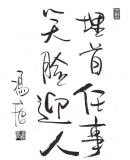 埋首任事
笑脸迎人